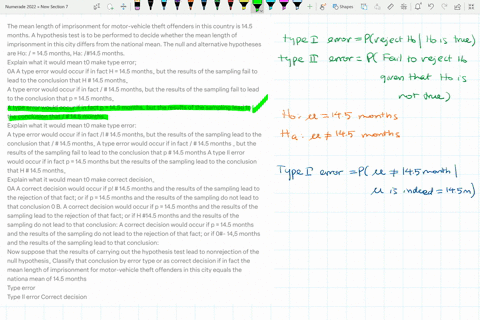 Numerade 2022 > New Section 7
The mean length of imprisonment for motor-vehicle theft offenders in this country is 14.5
months. A hypothesis test is to be performed to decide whether the mean length of
imprisonment in this city differs from the national mean. The null and alternative hypotheses
are Ho: / = 14.5 months, Ha: /#14.5 months.
Explain what it would mean t0 make type error;
0A A type error would occur if in fact H = 14.5 months, but the results of the sampling fail to
lead to the conclusion that H # 14.5 months,
A type error would occur if in fact / # 14.5 months but the results of the sampling fail to lead
to the conclusion that p = 14.5 months,
A type error would occur if in fact p = 14.5 months, but the results of the sampling lead to
the conclusion that / # 14.5 months,
Explain what it would mean t0 make type error:
A type error would occur if in fact /l # 14.5 months, but the results of the sampling lead to the
conclusion that / # 14.5 months, A type error would occur if in fact / # 14.5 months , but the
results of the sampling fail to lead to the conclusion that p # 14.5 months A type II error
would occur if in fact p = 14.5 months but the results of the sampling lead to the conclusion
that H # 14.5 months,
Explain what it would mean t0 make correct decision,
0A A correct decision would occur if p! # 14.5 months and the results of the sampling lead to
the rejection of that fact; or if p = 14.5 months and the results of the sampling do not lead to
that conclusion 0 B. A correct decision would occur if p = 14.5 months and the results of the
sampling lead to the rejection of that fact; or if H #14.5 months and the results of the
sampling do not lead to that conclusion: A correct decision would occur if p = 14.5 months
and the results of the sampling do not lead to the rejection of that fact; or if 0#- 14,5 months
and the results of the sampling lead to that conclusion:
Now suppose that the results of carrying out the hypothesis test lead to nonrejection of the
null hypothesis, Classify that conclusion by error type or as correct decision if in fact the
mean length of imprisonment for motor-vehicle theft offenders in this city equals the
nationa mean of 14.5 months
Type error
Type II error Correct decision
type I error = P(reject Ho | Ho is true)
type II error = P( Fail to reject Ho
given that Ho is
not true)
Ho: μ = 14.5 months
Ha: μ ≠ 14.5 months
Type I error = P( μ ≠ 14.5 month |
μ is indeed = 14.5 m)